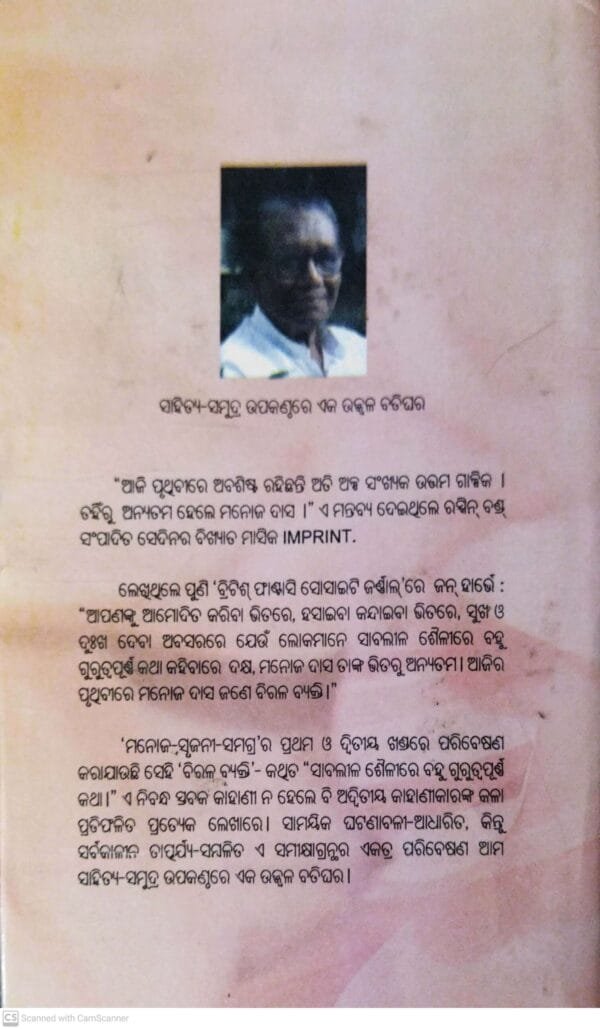 ସାହିତ୍ୟ-ସମୁଦ୍ର ଉପକଣ୍ଠରେ ଏକ ଉଜ୍ଜ୍ୱଳ ବତିଘର
“ଆଜି ପୃଥିବୀରେ ଅବଶିଷ୍ଟ ରହିଛନ୍ତି ଅତି ଅଳ୍ପ ସଂଖ୍ୟକ ଉତ୍ତମ ଗାଳ୍ପିକ ।
ତହିଁରୁ ଅନ୍ୟତମ ହେଲେ ମନୋଜ ଦାସ ।” ଏ ମନ୍ତବ୍ୟ ଦେଇଥିଲେ ରସ୍କିନ୍ ବଣ୍ଡ୍
ସଂପାଦିତ ସେଦିନର ବିଖ୍ୟାତ ମାସିକ IMPRINT.
ଲେଖିଥିଲେ ପୁଣି ‘ବ୍ରିଟିଶ୍ ଫାଣ୍ଟାସି ସୋସାଇଟି ଜର୍ଣ୍ଣାଲ୍’ରେ ଜନ୍ ହାର୍ଭେ :
“ଆପଣଙ୍କୁ ଆମୋଦିତ କରିବା ଭିତରେ, ହସାଇବା କନ୍ଦାଇବା ଭିତରେ, ସୁଖ ଓ
ଦୁଃଖ ଦେବା ଅବସରରେ ଯେଉଁ ଲୋକମାନେ ସାବଲୀଳ ଶୈଳୀରେ ବହୁ
ଗୁରୁତ୍ୱପୂର୍ଣ୍ଣ କଥା କହିବାରେ ଦକ୍ଷ, ମନୋଜ ଦାସ ତାଙ୍କ ଭିତରୁ ଅନ୍ୟତମ। ଆଜିର
ପୃଥିବୀରେ ମନୋଜ ଦାସ ଜଣେ ବିରଳ ବ୍ୟକ୍ତି।”
‘ମନୋଜ-ସୃଜନୀ-ସମଗ୍ର’ର ପ୍ରଥମ ଓ ଦ୍ୱିତୀୟ ଖଣ୍ଡରେ ପରିବେଷଣ
କରାଯାଉଛି ସେହି ‘ବିରଳ ବ୍ୟକ୍ତି’- କଥିତ “ସାବଲୀଳ ଶୈଳୀରେ ବହୁ ଗୁରୁତ୍ୱପୂର୍ଣ୍ଣ
କଥା।” ଏ ନିବନ୍ଧ ସ୍ତବକ କାହାଣୀ ନ ହେଲେ ବି ଅଦ୍ୱିତୀୟ କାହାଣୀକାରଙ୍କ କଳା
ପ୍ରତିଫଳିତ ପ୍ରତ୍ୟେକ ଲେଖାରେ। ସାମୟିକ ଘଟଣାବଳୀ-ଆଧାରିତ, କିନ୍ତୁ
ସର୍ବକାଳୀନ ତାତ୍ପର୍ଯ୍ୟ-ସମ୍ବଳିତ ଏ ସମୀକ୍ଷାଗ୍ରନ୍ଥର ଏକତ୍ର ପରିବେଷଣ ଆମ
ସାହିତ୍ୟ-ସମୁଦ୍ର ଉପକଣ୍ଠରେ ଏକ ଉଜ୍ଜ୍ୱଳ ବତିଘର।
CS Scanned with CamScanner